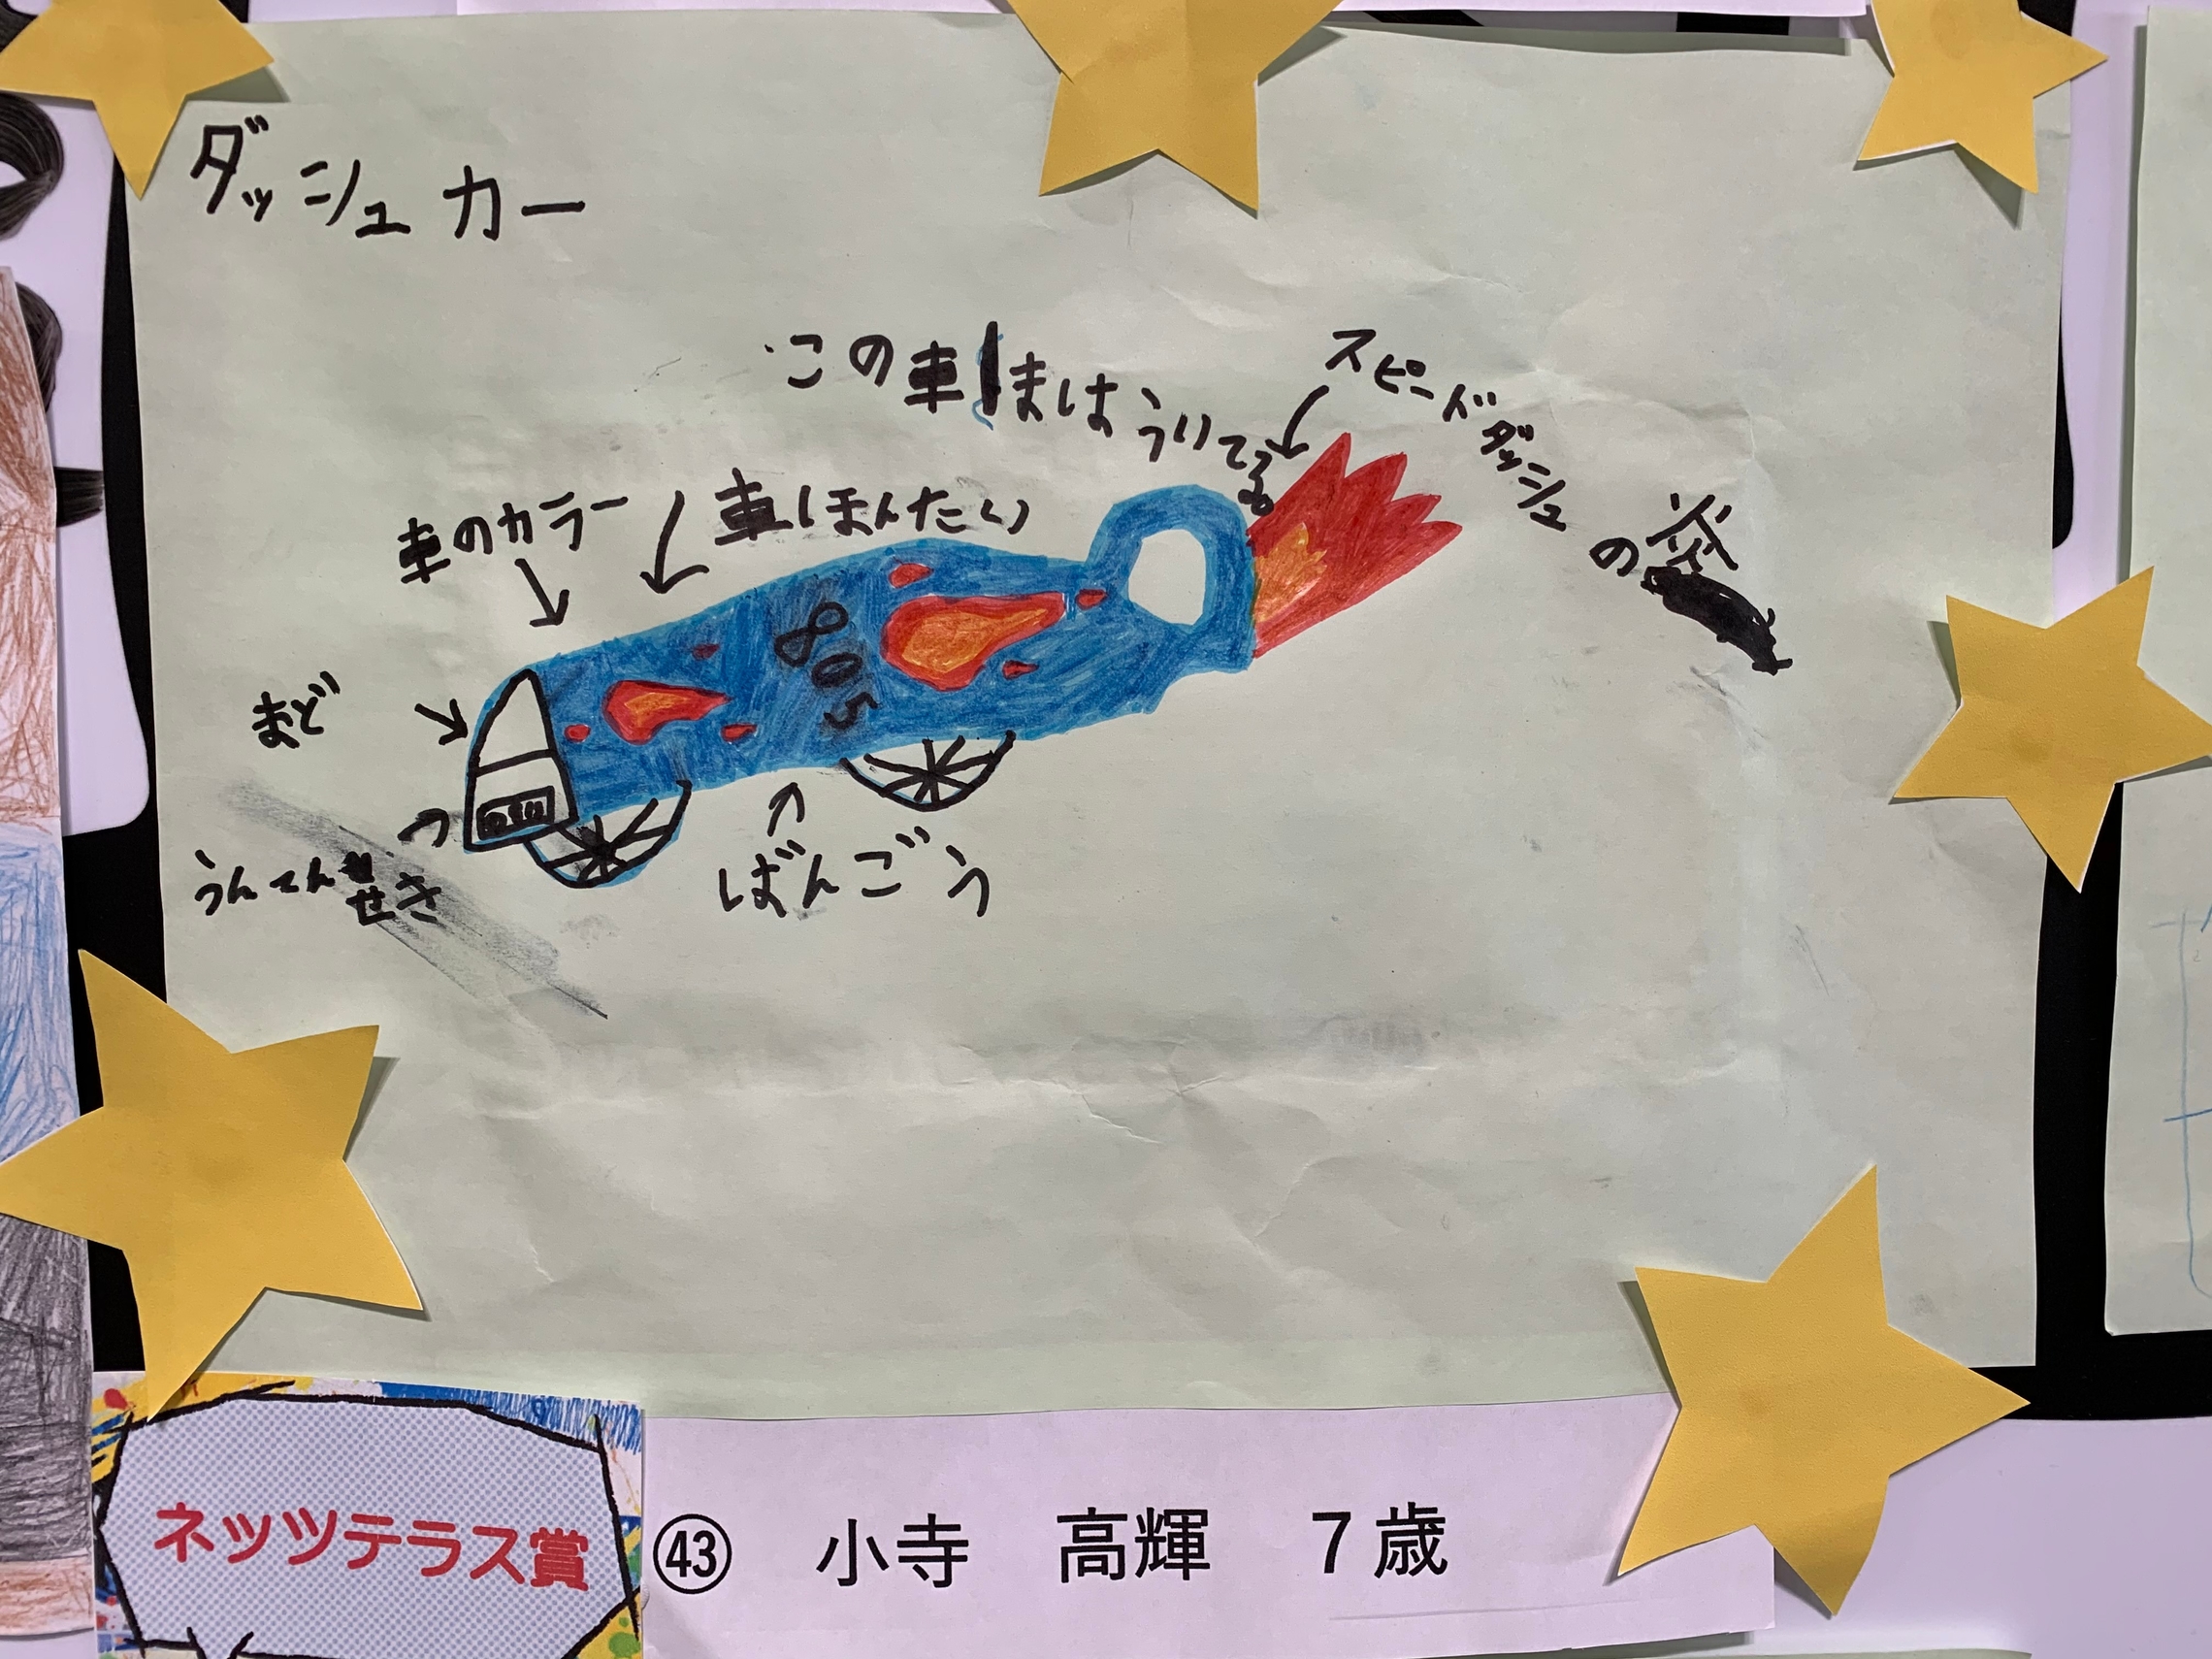 ダッシュカー
この車はういてる
スピードダッシュ
の炎
車のカラー
車ほんたい
805
まど
うんてん
せき
ばんごう
ネッツテラス賞
㊸ 小寺 高輝 7歳